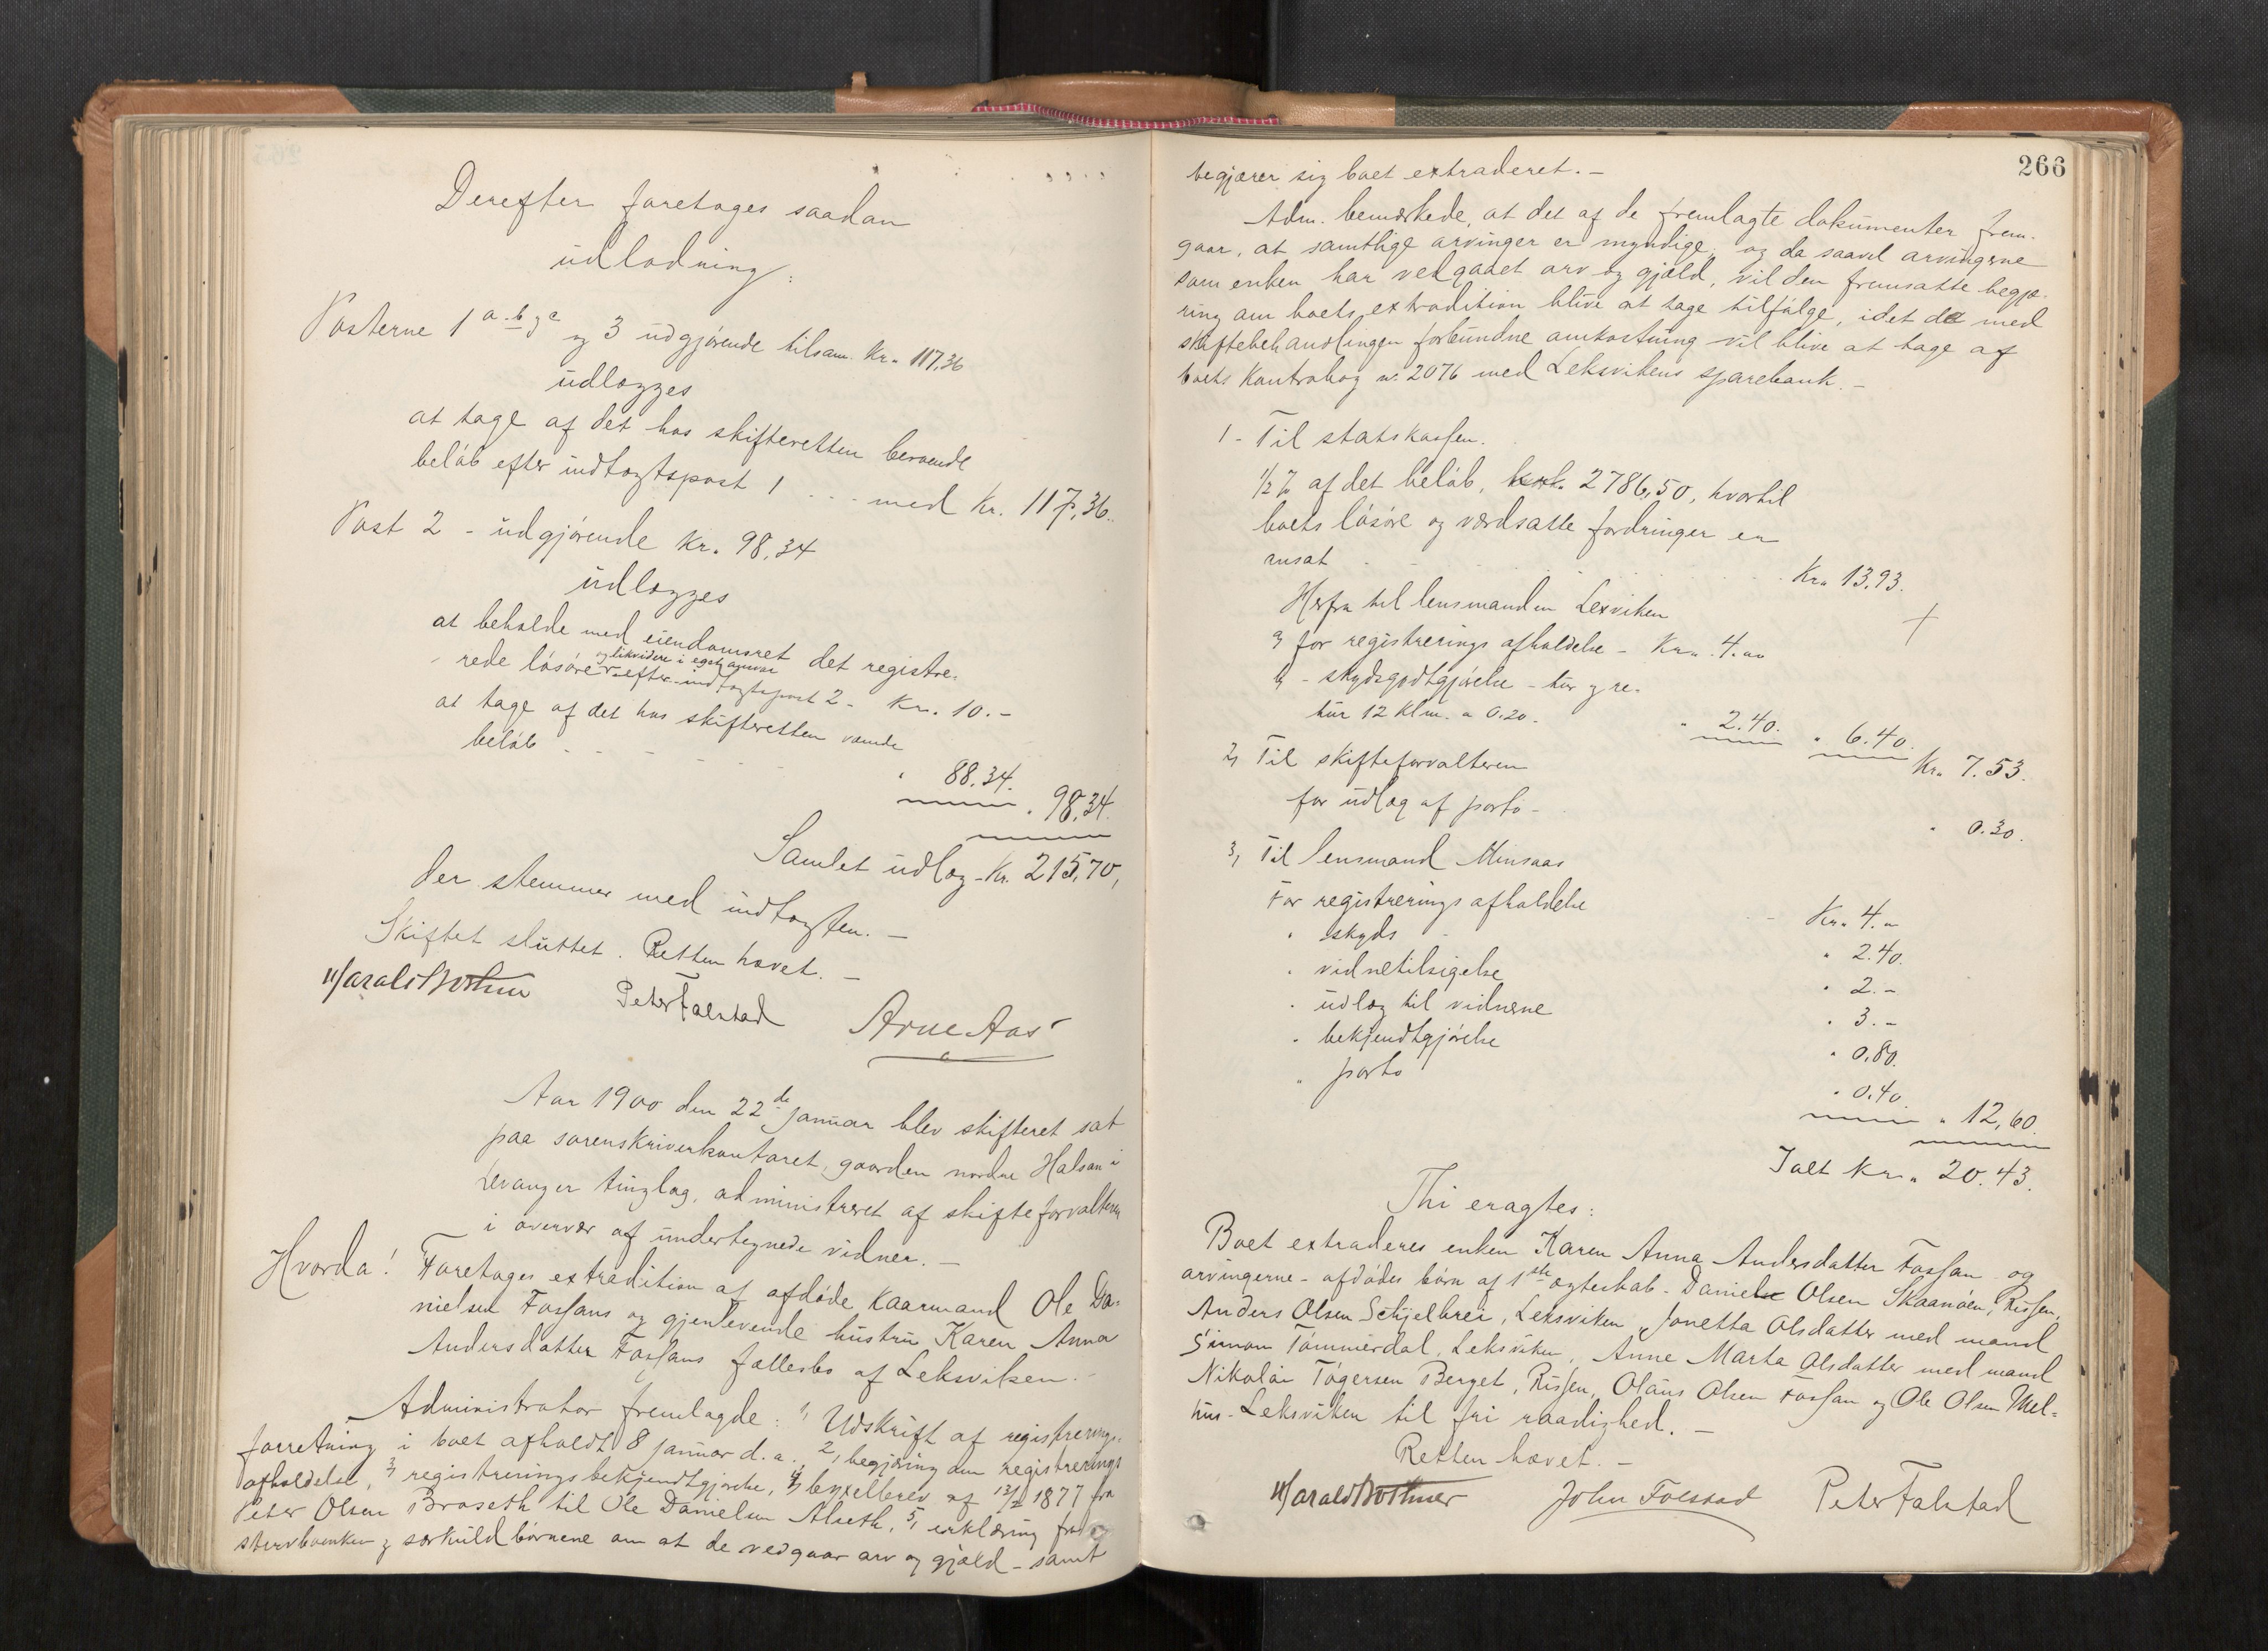 Derefter foretages saadan
udlodning:
Posterne 1 a-b-c og 3 udgjørende tilsam. Kr. 117,36
udlægges
at tage af det hos skifteretten beroende
beløb efter indtægtspost 1 - - - med Kr. 117,36.
Post 2 - udgjørende Kr. 98,34
udlægges
at beholde med eiendomsret det registre-
og likvidere i eget ansvar
rede løsøre efter indtægtspost 2 - Kr. 10.-
at tage af det hos skifteretten værende
beløb - - - - - " 88.34.
" 98,34.
Samlet udlæg - Kr. 215,70,
der stemmer med indtægten. -
Skiftet sluttet. Retten hævet. -
Harald Bothner Peter Falstad Arne Aas
Aar 1900 den 22de januar blev skifteret sat
paa sorenskriverkontoret, gaarden nordre Halsan i
Levanger tinglag, administreret af skifteforvalteren
i overvær af undertegnede vidner. -
Hvorda! Foretages extradition af afdøde kaarmand Ole Da-
nielsen Fossans og gjenlevende hustru Karen Anna
Andersdatter Fossans fællesbo af Leksviken. -
Administrator fremlagde: 1, Udskrift af registrerings-
forretning i boet afholdt 8 januar d.a., 2, begjæring om registrerings
afholdelse, 3, registreringsbekjendtgjørelse, 4, byxelbrev af 13/ 1877 fra
Peter Olsen Braseth til Ole Danielsen Alseth, 5, erklæring fra
stervboenken og særkuldbørnene om at de vedgaar arv og gjæld - samt
266
begjærer sig boet extraderet. -
Adm. bemærkede, at det af de fremlagte dokumenter frem-
gaar, at samtlige arvinger er myndige, og da saavel arvingerne
som enken har vedgaaet arv og gjæld, vil den fremsatte begjæ-
ring om boets extradition blive at tage tilfølge, idet de med
skiftebehandlingen forbundne omkostning vil blive at tage af
boets Kontrabog nr. 2076 med Leksvikens sparebank. -
1 - Til statskassen.
1/2 % af det beløb, kr. 2786,50, hvortil
boets løsøre og værdsatte fordringer er
ansat - - - Kr. 13.93.
Herfra til lensmanden Lexviken
a, for registrerings afholdelse - Kr. 4.00
b, - skydsgodtgjørelse - tur og re-
tur 12 Klm. a 0.20. " 2.40. " 6.40.
Kr. 7.53.
2, Til skifteforvalteren
for udlæg af porto - " 0.30.
3, Til lensmand Minsaas
For registrerings afholdelse - Kr. 4.-
" skyds - " 2.40.
" vidnetilsigelse " 2.-
" udlæg til vidnerne " 3.-
" bekjendtgjørelse " 0,80.
" porto " 0.40.
" 12,60.
Ialt Kr. 20.43.
Thi eragtes:
Boet extraderes enken Karen Anna Andersdatter Fossan og
arvingerne - afdødes børn af 1ste ægteskab - Daniel Olsen Skaanøen, Rissen,
Anders Olsen Schjelbrei, Leksviken, Jonetta Olsdatter med mand
Simon Tømmerdal, Leksviken, Anne Marta Olsdatter med mand
Nikolai Tøgersen Berget, Rissen, Olaus Olsen Fossan og Ole Olsen Mel-
hus - Leksviken til fri raadighed. -
Retten hævet. -
Harald Bothner John Folstad Peter Falstad